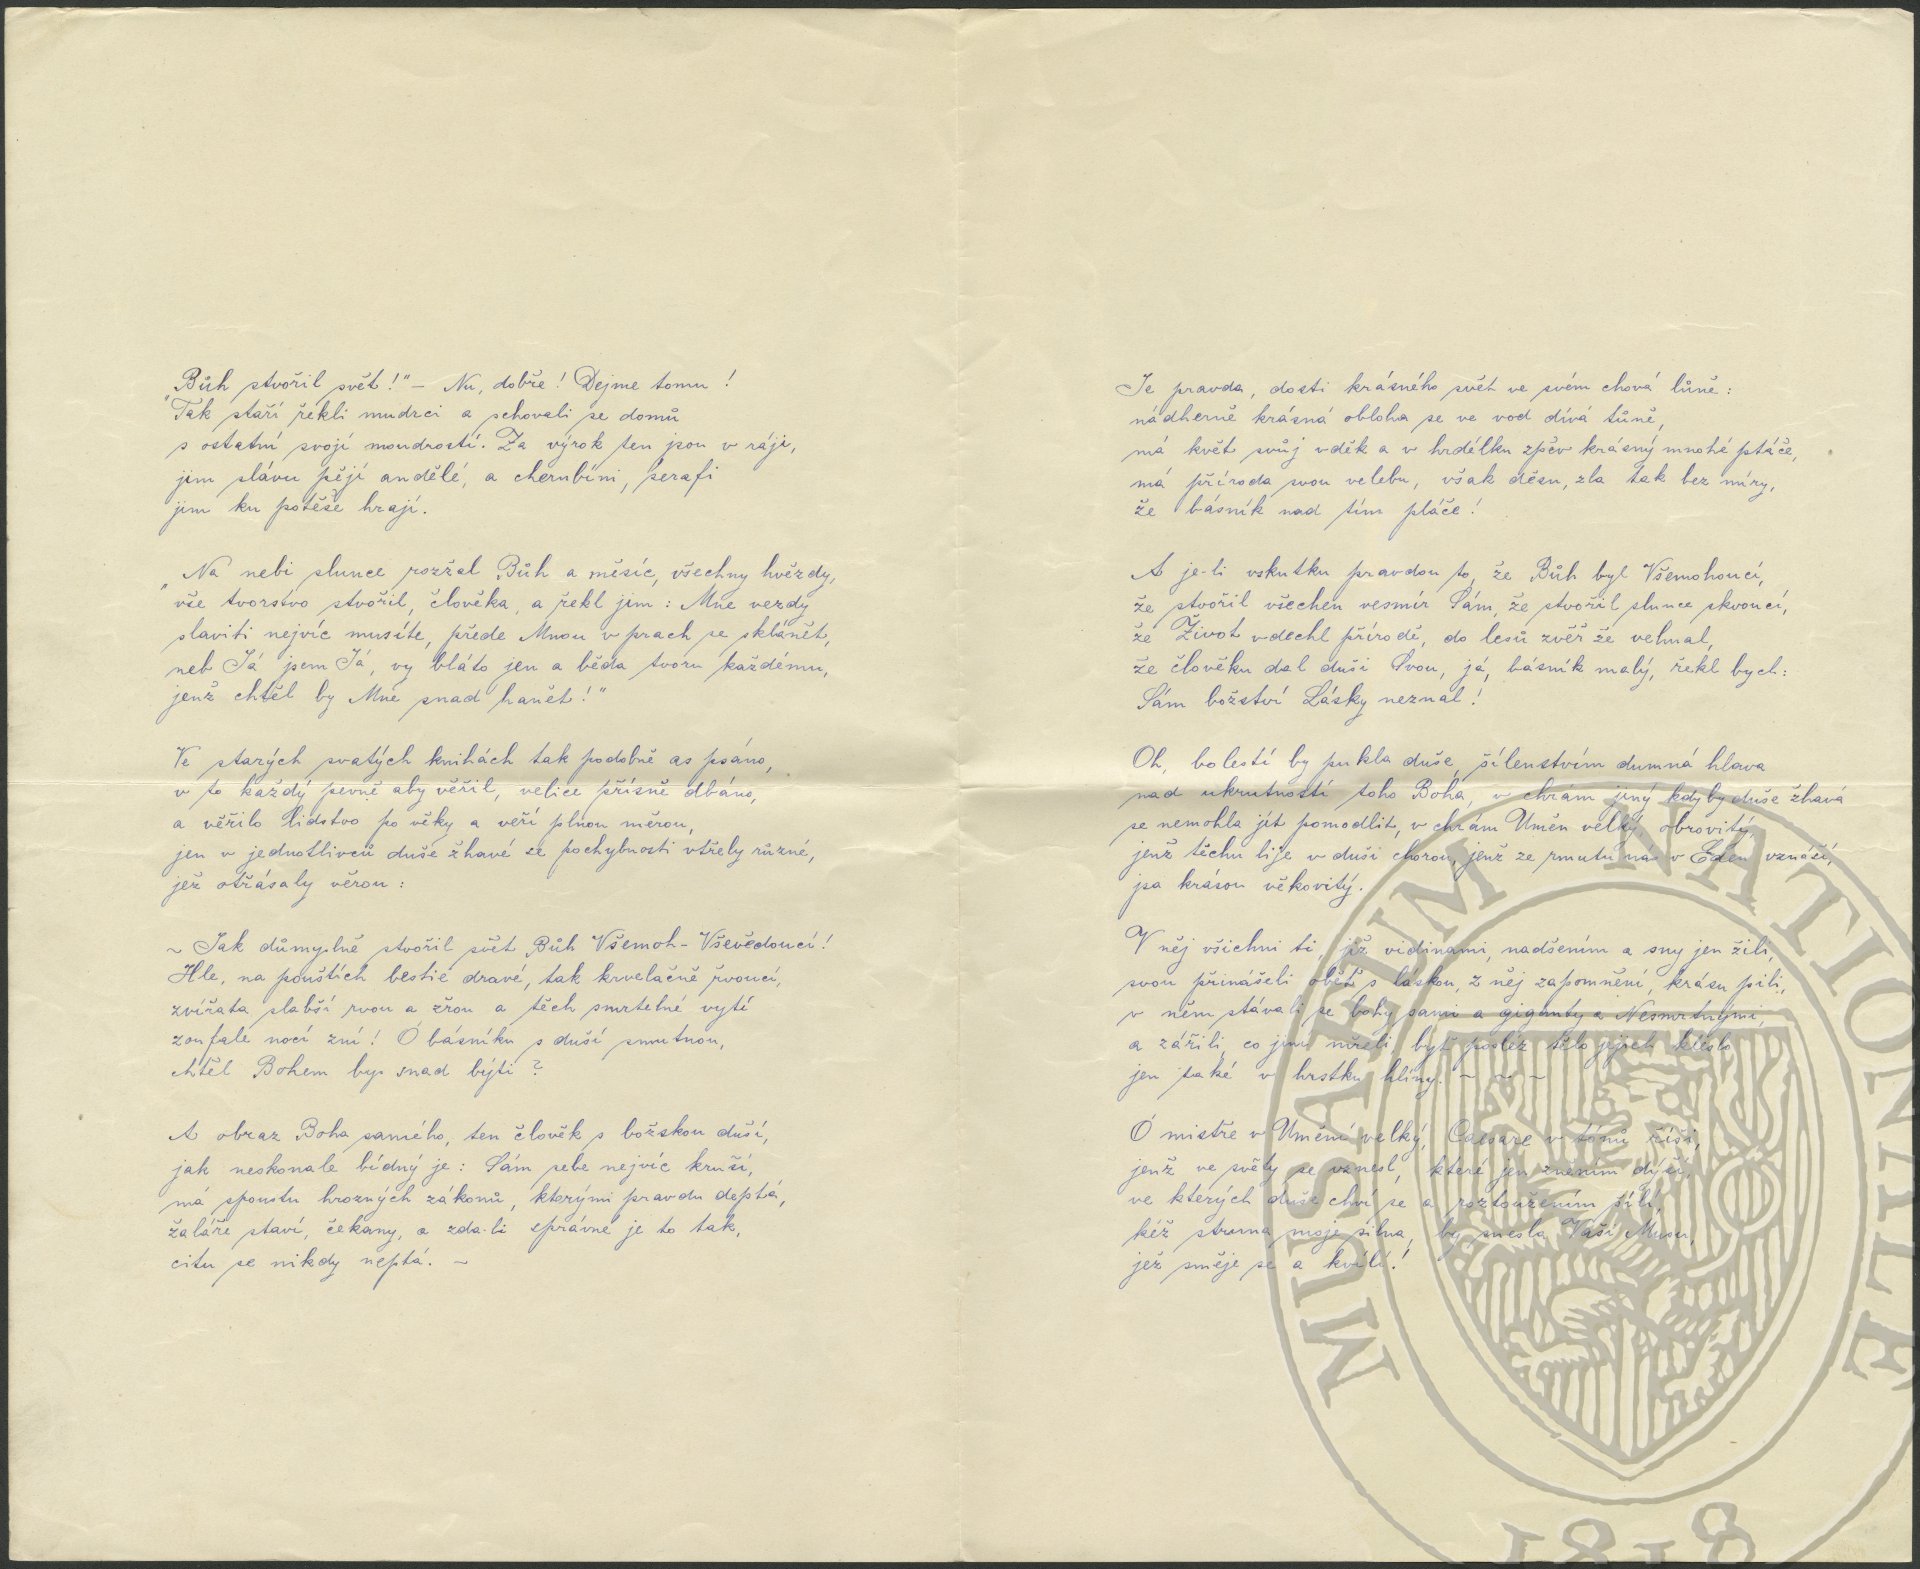 "Bůh stvořil svět!" — Nu, dobře! Dejme tomu!
Tak staří řekli mudrci a schovali se domů
s ostatní svojí moudrostí. Za výrok ten jsou v ráji,
jim slávu pějí andělé, a cherubíni, serafi
jim ku potěše hrají.
"Na nebi slunce rozžal Bůh a měsíc, všechny hvězdy,
vše tvorstvo stvořil, člověka, a řekl jim: Mne vezdy
slaviti nejvíc musíte, přede Mnou v prach se sklánět,
neb Já jsem Já, vy bláto jen a běda tvoru každému,
jenž chtěl by Mne snad hanět!"
Ve starých svatých knihách tak podobně as psáno,
v to každý pevně aby věřil, velice přísně dbáno,
a věřilo lidstvo po věky a věří plnou měrou,
jen v jednotlivců duše žhavé se pochybnosti vtřely různé,
jež otřásaly věrou:
~ Jak důmyslně stvořil svět Bůh Všemoh-Vševědoucí!
Hle, na pouštích bestie dravé, tak krvelačně řvoucí,
zvířata slabší rvou a žrou a těch smrtelné vytí
zoufale nocí zní! Ó básníku s duší smutnou,
chtěl Bohem bys snad býti?
A obraz Boha samého, ten člověk s božskou duší,
jak neskonale bídný je: Sám sebe nejvíc kruší,
má spoustu hrozných zákonů, kterými pravdu deptá,
žaláře staví, čekany, a zda-li správné je to tak,
citu se nikdy neptá. ~
Je pravda, dosti krásného svět ve svém chová lůně:
nádherně krásná obloha se ve vod dívá tůně,
má květ svůj vděk a v hrdélku zpěv krásný mnohé ptáče,
má příroda svou velebu, však děsu, zla tak bez míry,
že básník nad tím pláče!
A je-li vskutku pravdou to, že Bůh byl Všemohoucí,
že stvořil všechen vesmír Sám, že stvořil slunce skvoucí,
že Život vdechl přírodě, do lesů zvěř že vehnal,
že člověku dal duši Svou, já, básník malý, řekl bych:
Sám božství Lásky neznal!
Oh, bolestí by pukla duše, šílenstvím dumná hlava
nad ukrutností toho Boha, v chrám jiný kdyby duše žhavá
se nemohla jít pomodlit, v chrám Uměn velký, obrovitý,
jenž těchu lije v duši chorou, jenž ze rmutu nás v Eden vznáší,
jsa krásou věkovitý.
V něj všichni ti, již vidinami, nadšením a sny jen žili,
svou přinášeli oběť s láskou, z něj zapomnění, krásu pili,
v něm stávali se bohy sami a giganty a Nesmrtnými,
a zářili, co jiní mřeli, byť posléz tělo jejich kleslo
jen také v hrstku hlíny. ~ ~ ~
Ó mistře v Umění velký, Caesare v tónů říši,
jenž ve světy se vznesl, které jen zněním dýší,
ve kterých duše chví se a roztoužením šílí,
kéž struna moje silna, by snesla Váší Musu,
jež směje se a kvílí!
MUSAEUM NATIONALE
1818